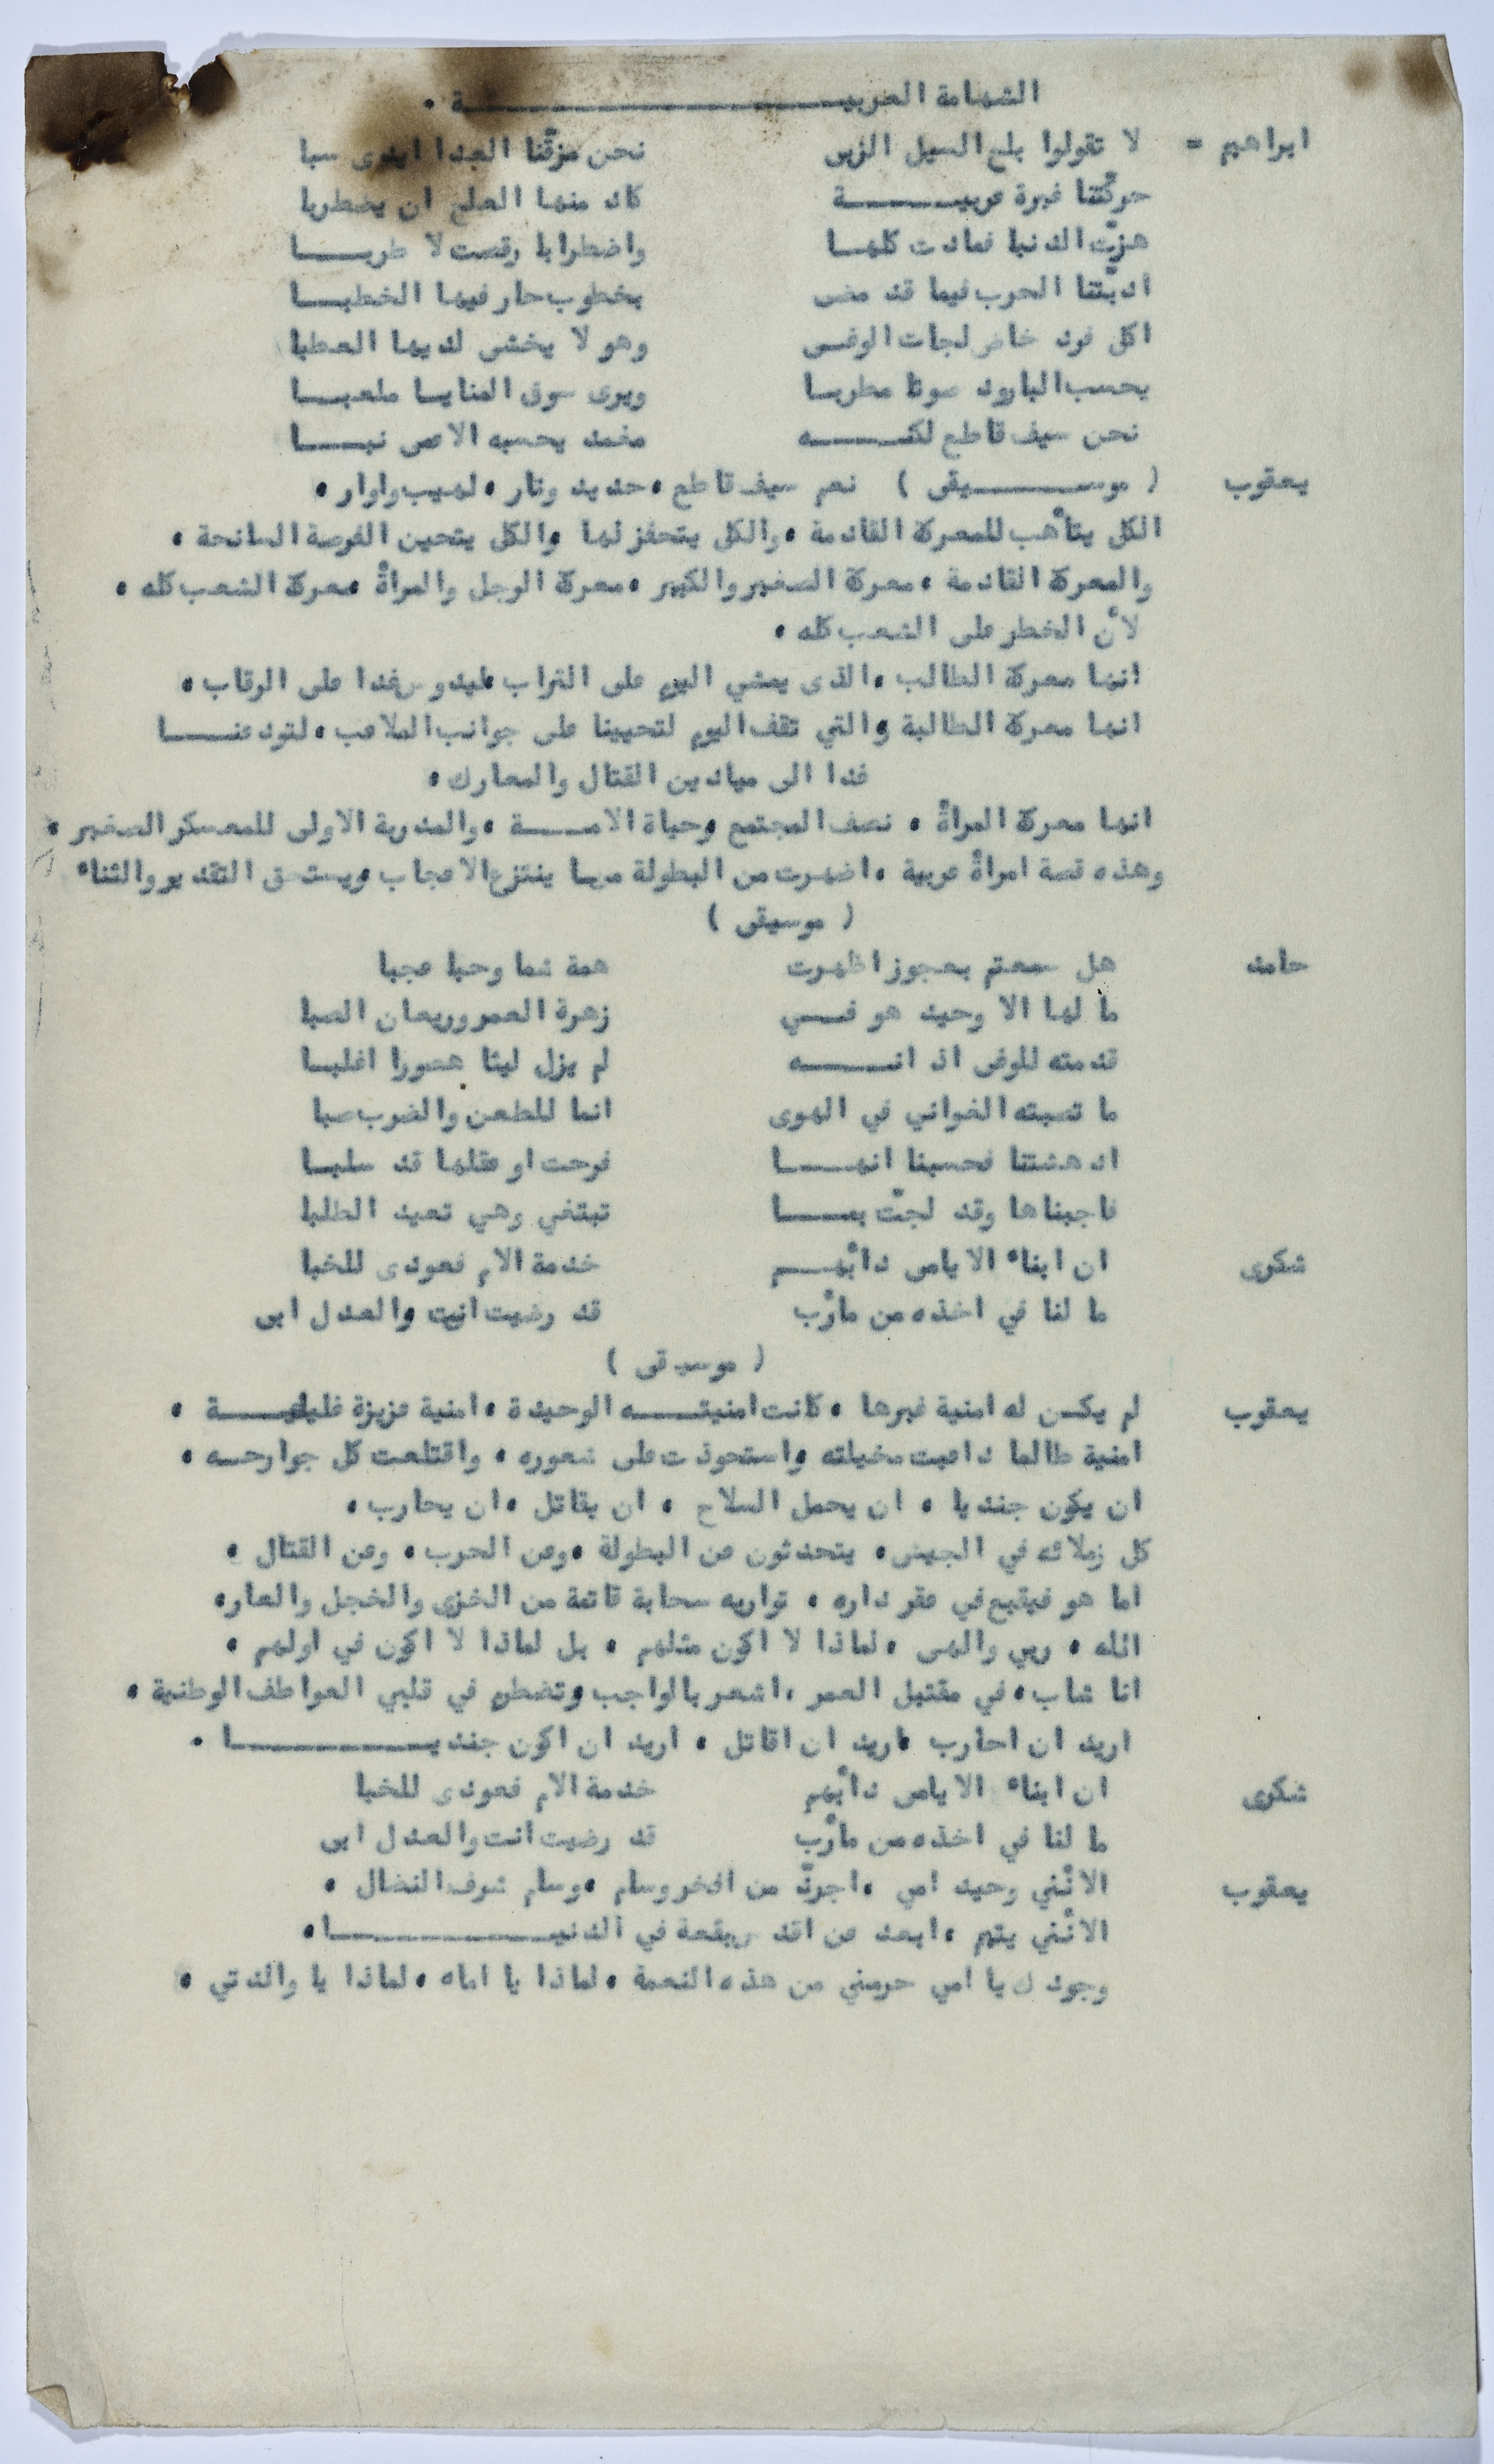 الشهامة العربيـــــــــــــــــــة .
ابراهيم = لا تقولوا بلغ السيل الزبى نحن مزقنا العدا ايدى سبا
حركّتنا غيرة عربيـــــــة كاد منها الصلح ان يضطربا
هزّت الدنيا فمادت كلهـا واضطرابا رقصت لا طربـــا
ادبّتنا الحرب فيما قد مضى بخطوب حار فيها الخطبـــا
اكل فرد خاض لجات الوغـى وهو لا يخشى لديها العطبا
يحسب البارود صوتا مطربـا ويرى سوق المنايـا ملعبـــا
نحن سيف قاطع لكنـــــه مغمد يحسبه الاعمى نبـــــا
يعقوب ( موســـــيقى ) نعم سيف قاطع ، حديد ونار ، لهيب واوار .
الكل يتأهب للمعركة القادمة ، والكل يتحفز لها والكل يتحين الفرصة السانحة .
والمعركة القادمة ، معركة الصغير والكبير ، معركة الرجل والمرأة معركة الشعب كله .
لأن الخطر على الشعب كله .
انها معركة الطالب ، الذى يمشي اليوم على التراب ليدوس غدا على الرقاب .
انها معركة الطالبة والتي تقف اليوم لتحيينا على جوانب الملاعب ، لتودعنــــا
غدا الى ميادين القتال والمعارك .
انها معركة المرأة ، نصف المجتمع وحياة الامـــــة ، والمدربة الاولى للمعسكر الصغير .
وهذه قصة امرأة عربية ، اضهرت من البطولة مـا ينتزع الاعجاب ويستحق التقدير والثناء
( موسيقى )
حامد هل سمعتم بعجوز اظهرت همة شما وحبا عجبا
ما لها الا وحيد هو فــي زهرة العمر وريعان الصبا
قدمته للوغى اذ انـــــه لم يزل ليثا هصورا اغلبـا
ما تصبته الغواني في الهوى انما للطعن والضرب صبا
ادهشتنا فحسبنا انهــــا فرحت او عقلها قد سلبـا
فاجبناها وقد لجتّ بمــــا تبتغي وهي تعيد الطلبا
شكرى ان ابناء الايامى دأبهـــم خدمة الام فعودى للخبا
ما لنا في اخذه من مأرب قد رضيت انت والعدل ابى
( موسيقى )
يعقوب لم يكـن له امنية غيرها ، كانت امنيتــــه الوحيدة ، امنية عزيزة غاليـــــة .
امنية طالما داعبت مخيلته واستحوذت على شعوره ، واقتلعت كل جوارحـه .
ان يكون جنديا ، ان يحمل السلاح ، ان يقاتل ، ان يحارب .
كل زملائه في الجيش ، يتحدثون عن البطولة ، وعن الحرب ، وعن القتال .
اما هو فيقبع في عقر داره ، تواريه سحابة قاتمة من الخزى والخجل والعار .
الله ، ربي والهـى ، لماذا لا اكون مثلهم ، بل لماذا لا اكون في اولهم .
انا شاب ، في مقتبل العمر ، اشعر بالواجب وتضطرم في قلبي العواطف الوطنية .
اريد ان احارب ، اريد ان اقاتل ، اريد ان اكون جنديـــــــــــا .
شكرى ان ابناء الايامى دأبهم خدمة الام فعودى للخبا
ما لنا في اخذه من مأرب قد رضيت انت والعدل ابى
يعقوب الانّني وحيد امي ، اجردّ من افخر وسام ، وسام شرف النضال .
الانّني يتيم ، ابعد عن اقدس بقعة في الدنيــــــــــــا .
وجودك يا امي حرمني من هذه النعمة ، لماذا يا اماه ، لماذا يا والدتي .